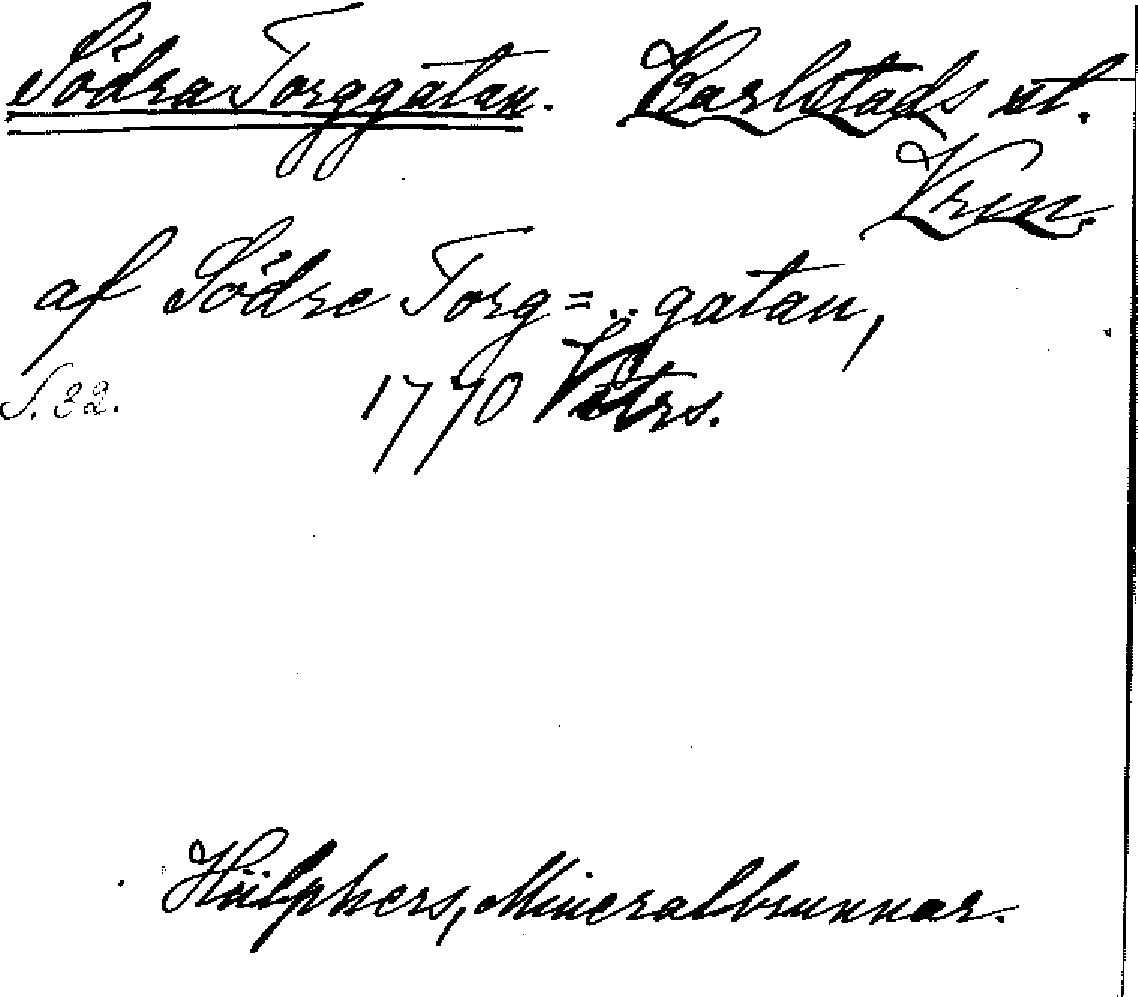 Södra Torggatan. Karlstads st.
Vrm.
af Södre Torg=gatan,
S. 32. 1770 Vätrs.
Hülphers, Mineralbrunnar.